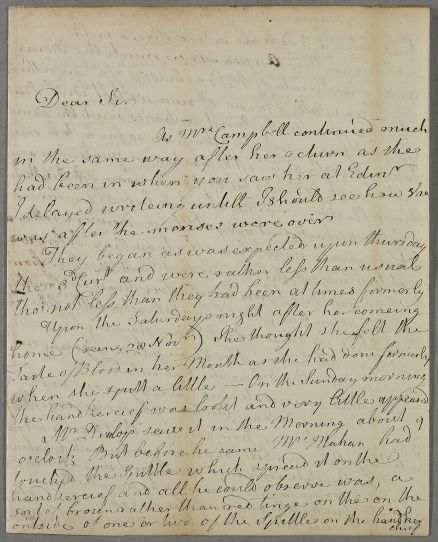 Dear Sir
As Mrs Campbell continued much
in the same way after her return as she
had been in when you saw her at Edinr
I delayed writeing untill I should see how she
was after the menses were over
They began as was expected upon thursday
the 3d Curt and were rather less than usual
tho' not less than they had been at times formerly
Upon the Saturdays night after her comeing
home (being 28 Novr) She thought she felt the
Taste of Blood in her Mouth as she had done formerly
when she spitt a little — On the Sunday morning
the handkercief was lookt and very little appeared
Mr Dunlop saw it in the Morning about 9
oclock But before he came Mrs Mahan had
touched the Spittle which spread it on the
handkercief and all he could observe was, a
sort of brown rather than red tinge on the on the
outside of one or two of the Spittle on the handker
cieef